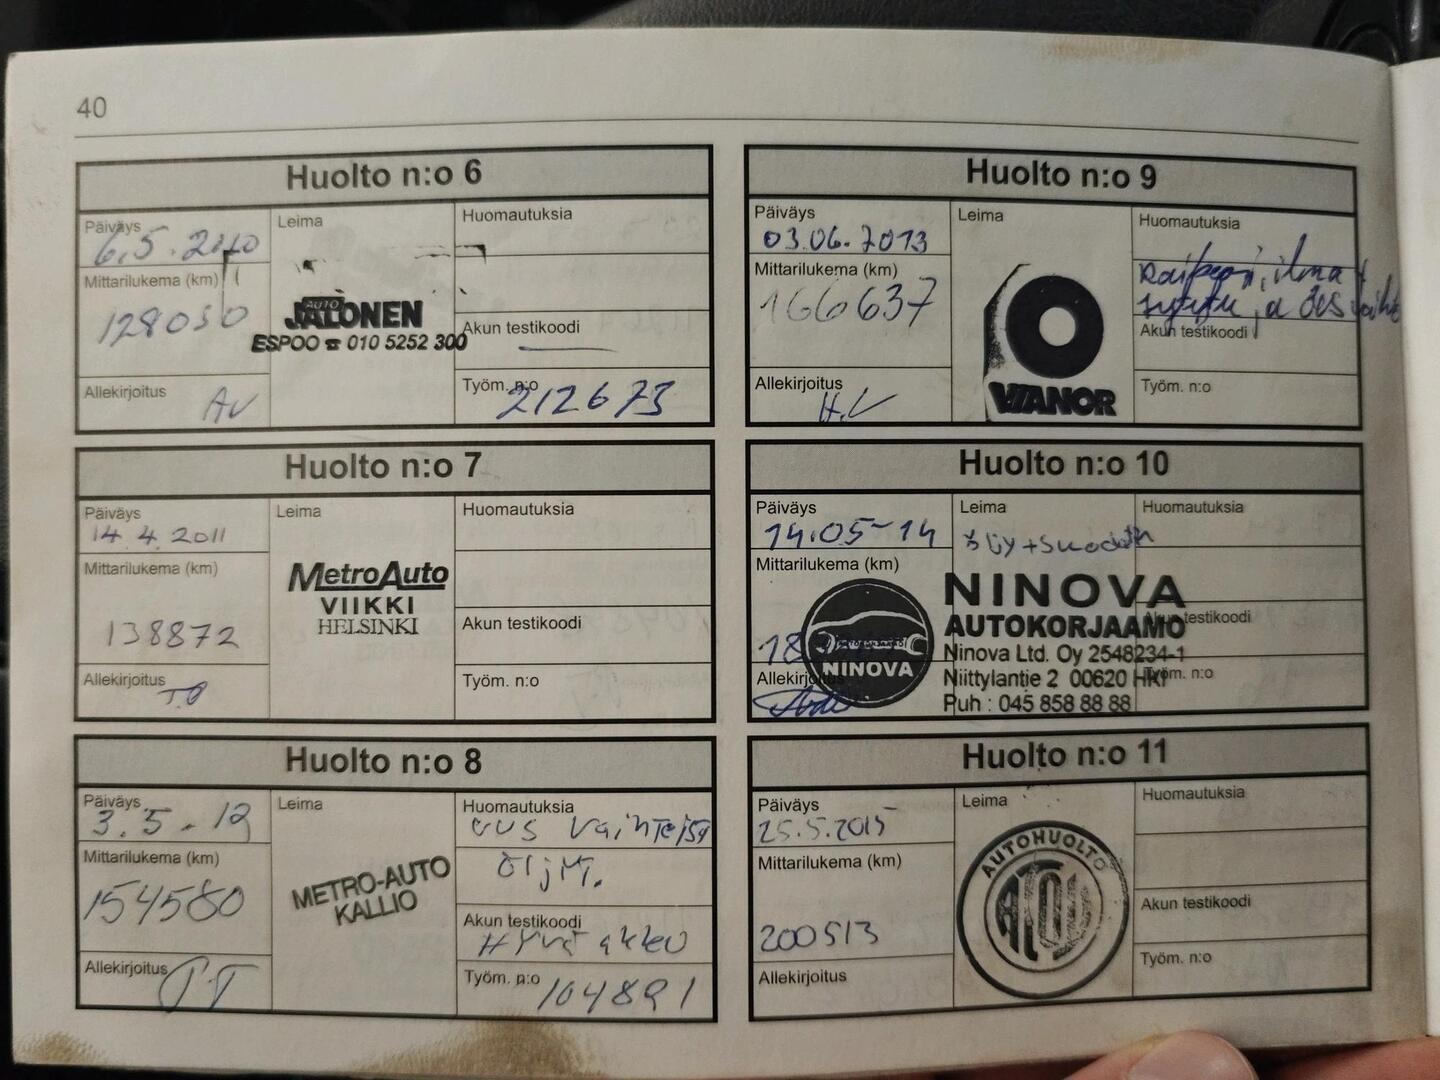 40
Huolto n:o 6
Päiväys
6.5.2010
Mittarilukema (km)
128050
Allekirjoitus
AV
Leima
AUTO
JALONEN
ESPOO ☎ 010 5252 300
Huomautuksia
Akun testikoodi
Työm. n:o
212673
Huolto n:o 7
Päiväys
14.4.2011
Mittarilukema (km)
138872
Allekirjoitus
Leima
MetroAuto
VIIKKI
HELSINKI
Huomautuksia
Akun testikoodi
Työm. n:o
Huolto n:o 8
Päiväys
3.5.12
Mittarilukema (km)
154580
Allekirjoitus
Leima
METRO-AUTO
KALLIO
Huomautuksia
uus vaihteisto
öljyt.
Akun testikoodi
Hyvä akku
Työm. n:o
104891
Huolto n:o 9
Päiväys
03.06.2013
Mittarilukema (km)
166637
Allekirjoitus
H.V
Leima
VIANOR
Huomautuksia
ilma
Akun testikoodi
Työm. n:o
Huolto n:o 10
Päiväys
14.05-14
Mittarilukema (km)
Allekirjoitus
Leima
öljy+suodatin
NINOVA
NINOVA
AUTOKORJAAMO
Ninova Ltd. Oy 2548234-1
Niittylantie 2 00620 HKI
Puh : 045 858 88 88
Huomautuksia
Akun testikoodi
Työm. n:o
Huolto n:o 11
Päiväys
25.5.2015
Mittarilukema (km)
200513
Allekirjoitus
Leima
AUTOHUOLTO
ATOY
Huomautuksia
Akun testikoodi
Työm. n:o